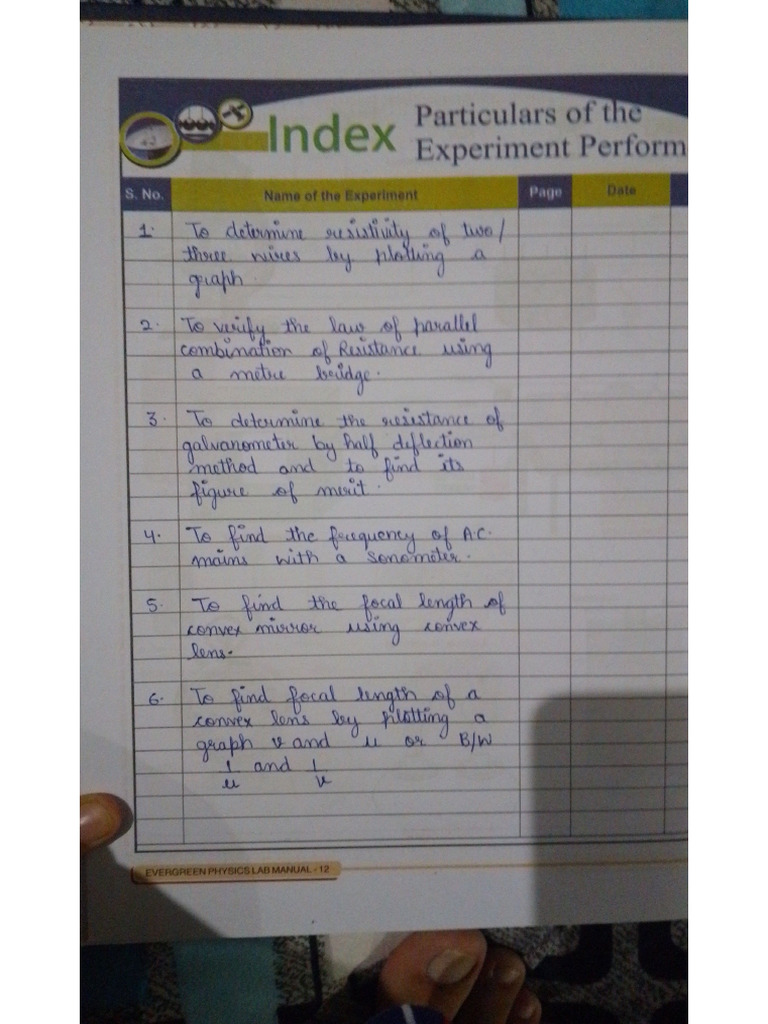 Index
Particulars of the
Experiment Perform
S. No. Name of the Experiment Page Date
1. To determine resistivity of two/
three wires by plotting a
graph.
2. To verify the law of parallel
combination of Resistance using
a metre bridge.
3. To determine the resistance of
galvanometer by half deflection
method and to find its
figure of merit.
4. To find the frequency of A.C.
mains with a sonometer.
5. To find the focal length of
convex mirror using convex
lens.
6. To find focal length of a
convex lens by plotting a
graph v and u or B/W
1/u and 1/v
EVERGREEN PHYSICS LAB MANUAL - 12